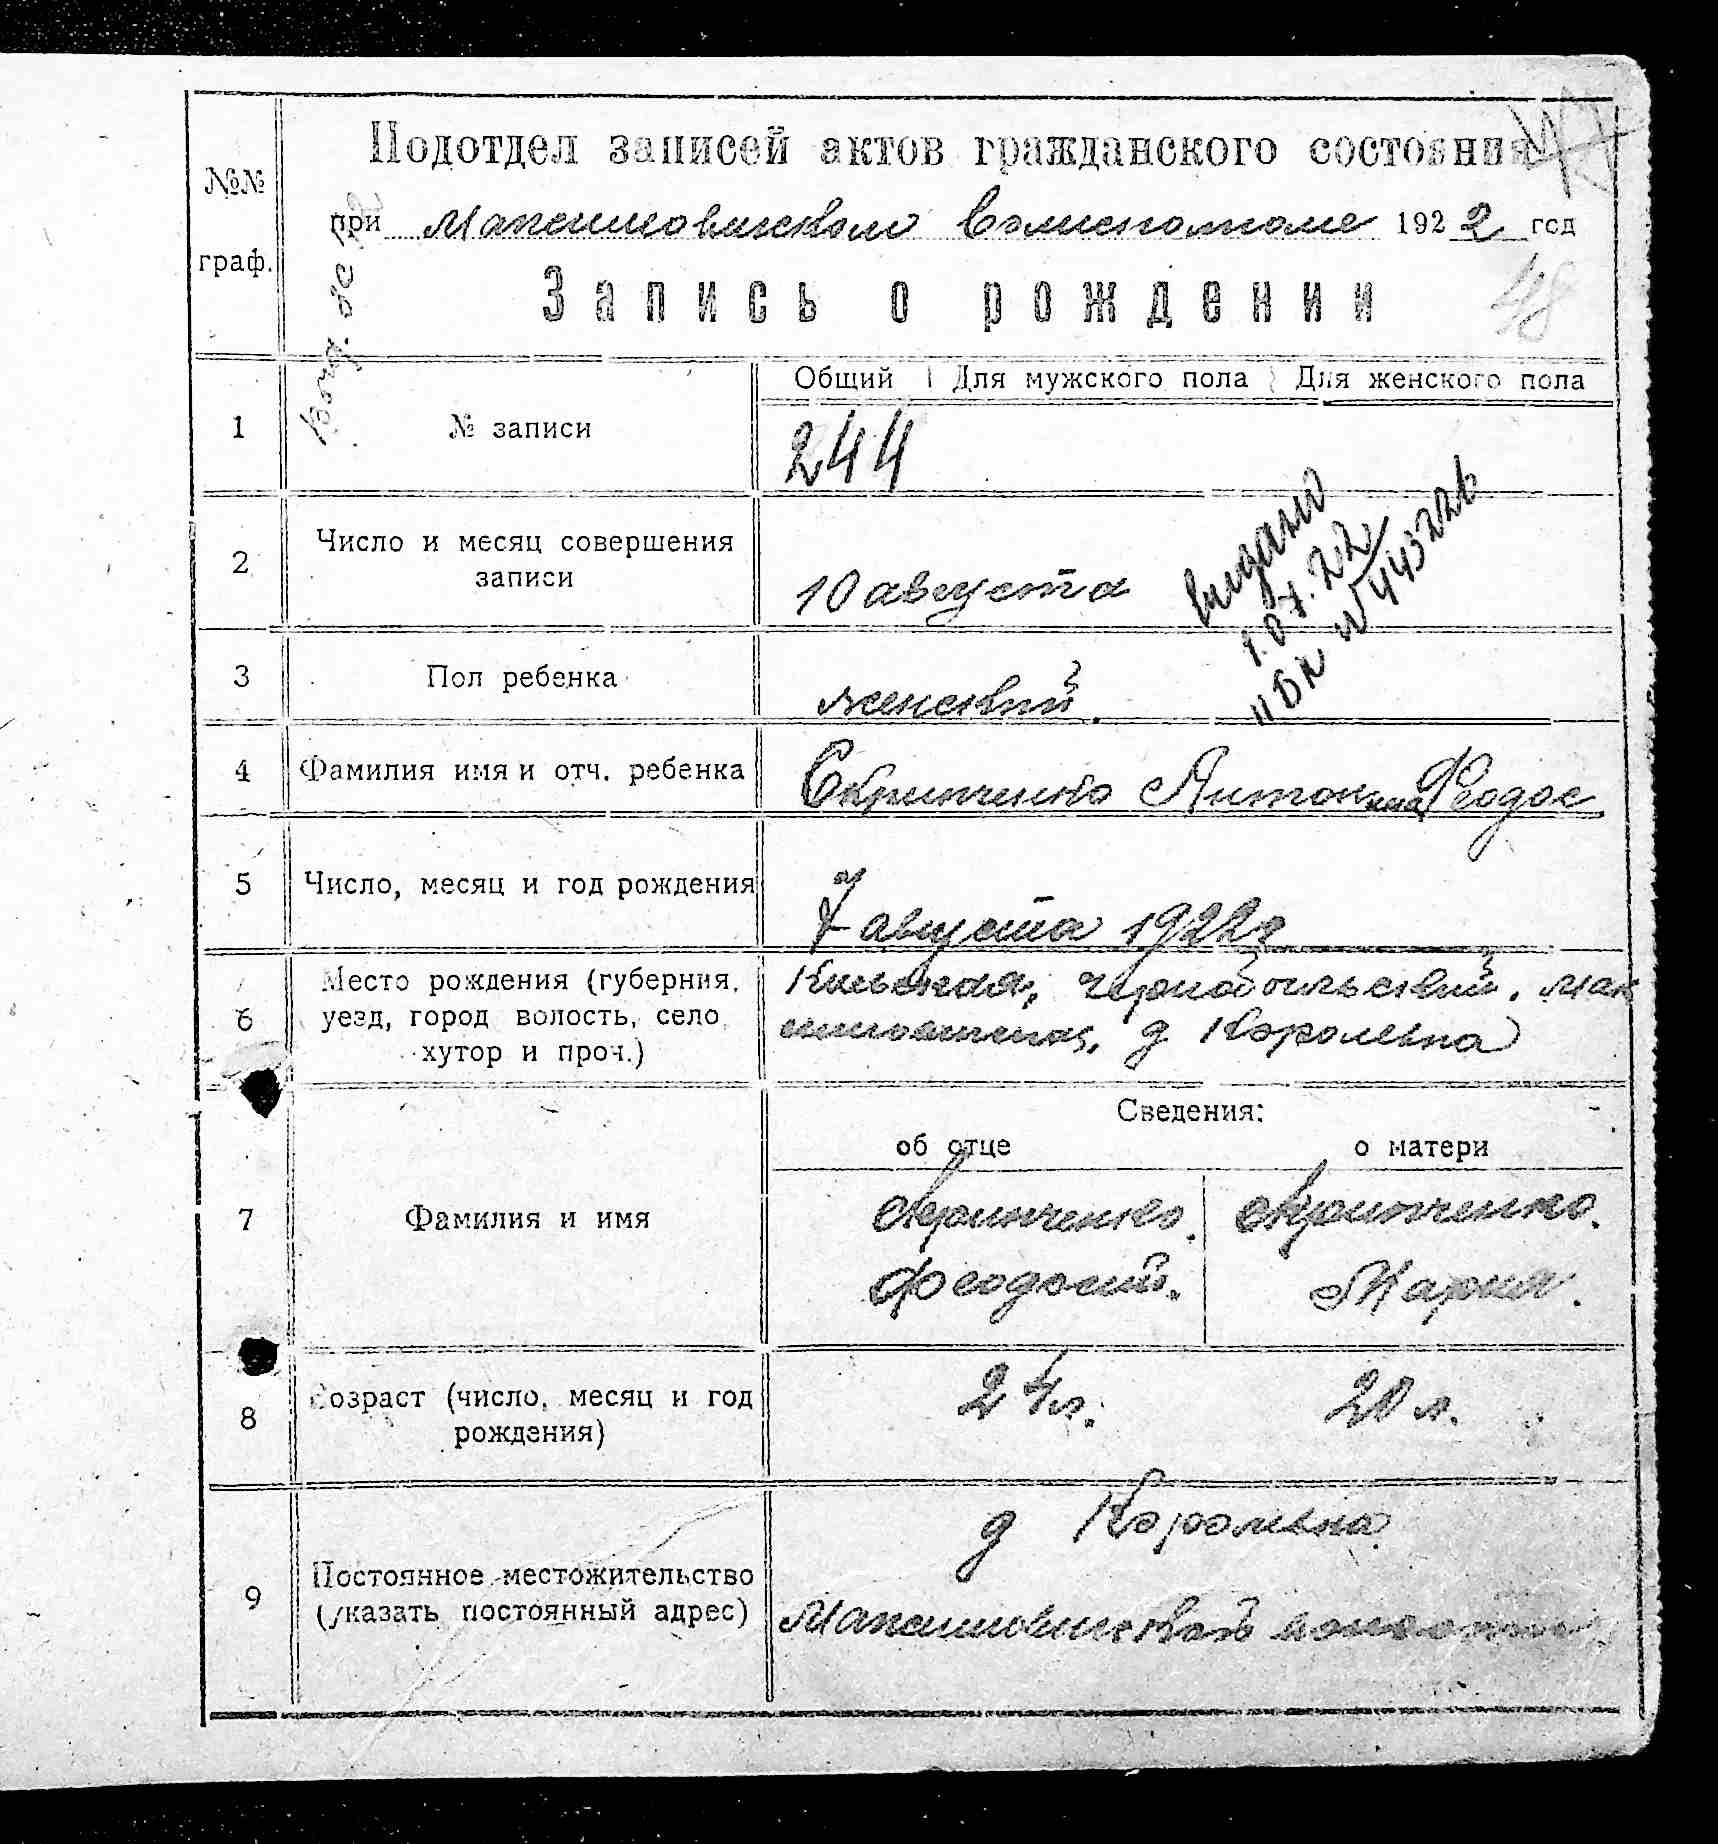 Подотдел записей актов гражданского состояния
№№ граф.
при Максимовическом Волисполкоме 1922 год
48
Запись о рождении
Общий Для мужского пола Для женского пола
1 № записи 244
2 Число и месяц совершения
записи 10 августа
видано
1.07.22
3 Пол ребенка женский
4 Фамилия имя и отч. ребенка Скрипченко Антонина Феодос
5 Число, месяц и год рождения 7 августа 1922 г
6 Место рождения (губерния,
уезд, город волость, село
хутор и проч.)
Киевская, Чернобыльский, Мак
д Королевка
Сведения:
об отце о матери
7 Фамилия и имя Скрипченко. Скрипченко.
Феодосий. Мария.
8 Возраст (число, месяц и год
рождения) 24 л. 20 л.
9 Постоянное местожительство
(указать постоянный адрес)
д Королевка
Максимовической волости